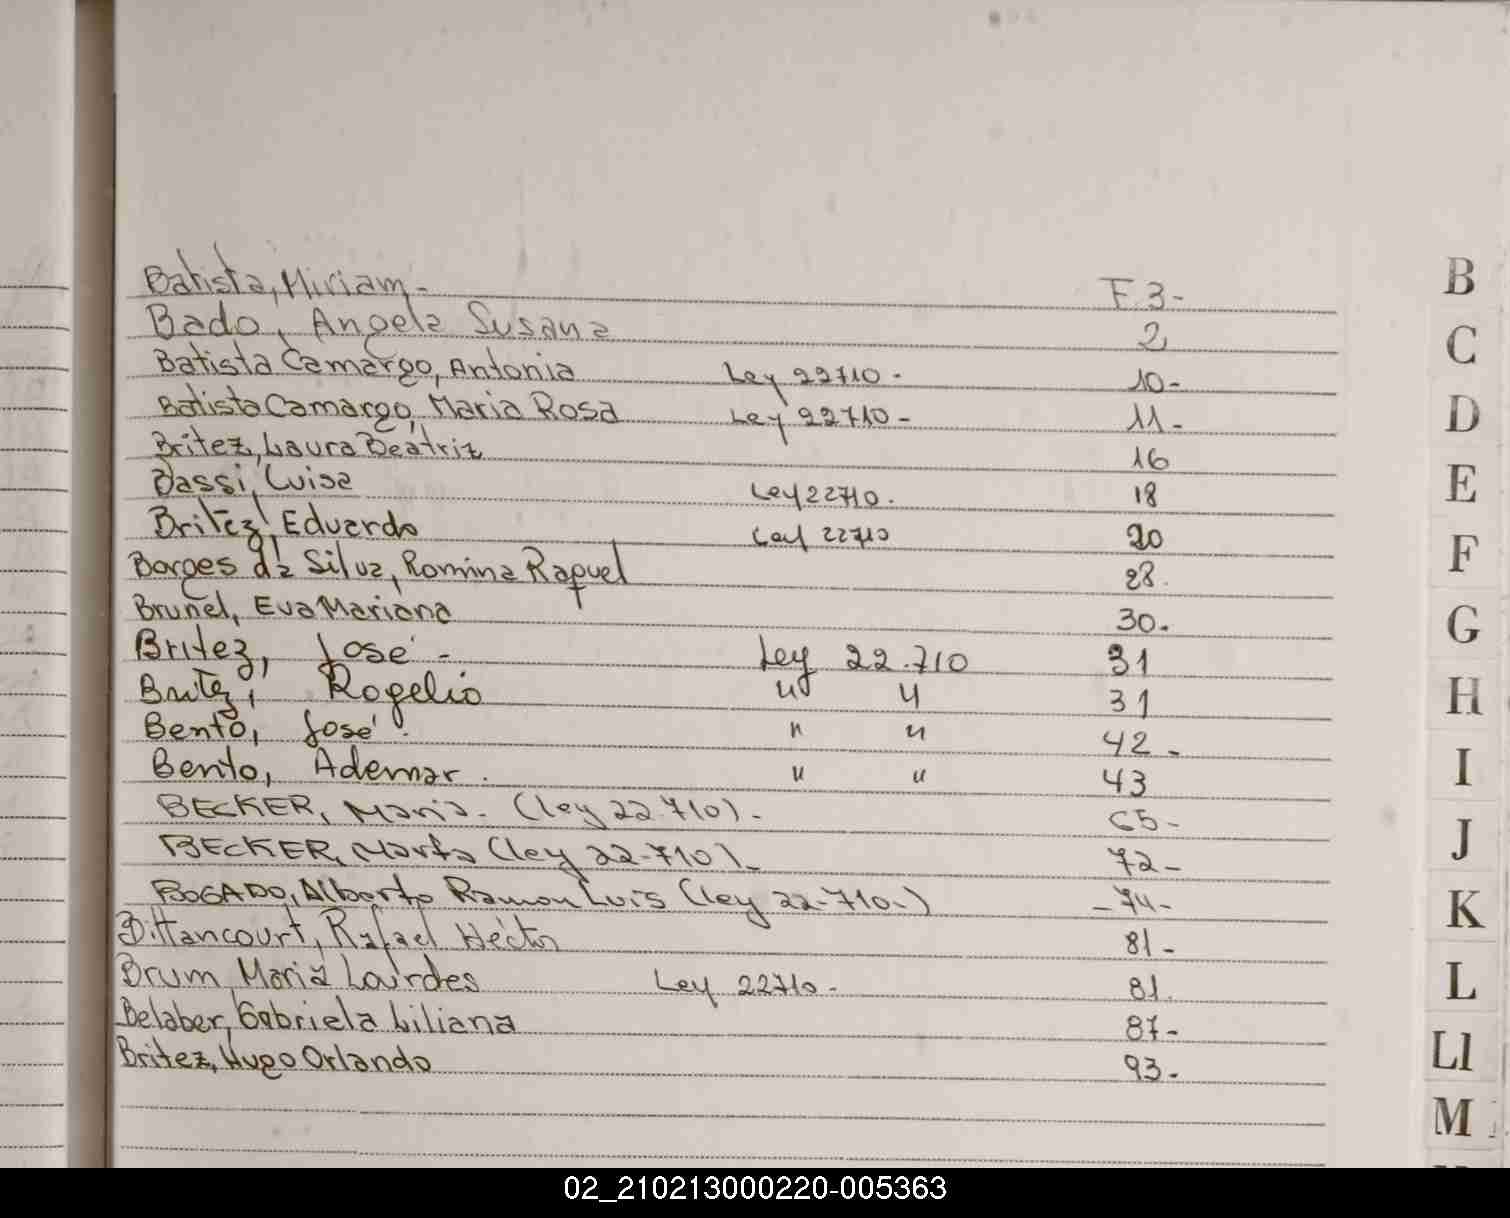 Batista, Miriam.- F.3-
Bado, Angela Susana 2
Batista Camargo, Antonia Ley 22710.- 10-
Batista Camargo, Maria Rosa Ley 22710- 11-
Britez, Laura Beatriz 16
Bassi, Luisa Ley 22710. 18
Britez, Eduardo Ley 22710 20
Borges da Silva, Romina Raquel 28.
Brunel, Eva Mariana 30.
Britez, José.- Ley 22.710 31
Britez, Rogelio " " 31
Bento, José. " " 42-
Bento, Ademar. " " 43
BECKER, Maria. (ley 22.710).- 65-
BECKER, Marta (ley 22-710).- 72-
BOGADO, Alberto Ramon Luis (ley 22-710-) -74-
Bittancourt, Rafael Héctor 81-
Brum, Maria Lourdes Ley 22710- 81.
Belaber, Gabriela Liliana 87-
Britez, Hugo Orlando 93.
B
C
D
E
F
G
H
I
J
K
L
Ll
M
02_210213000220-005363